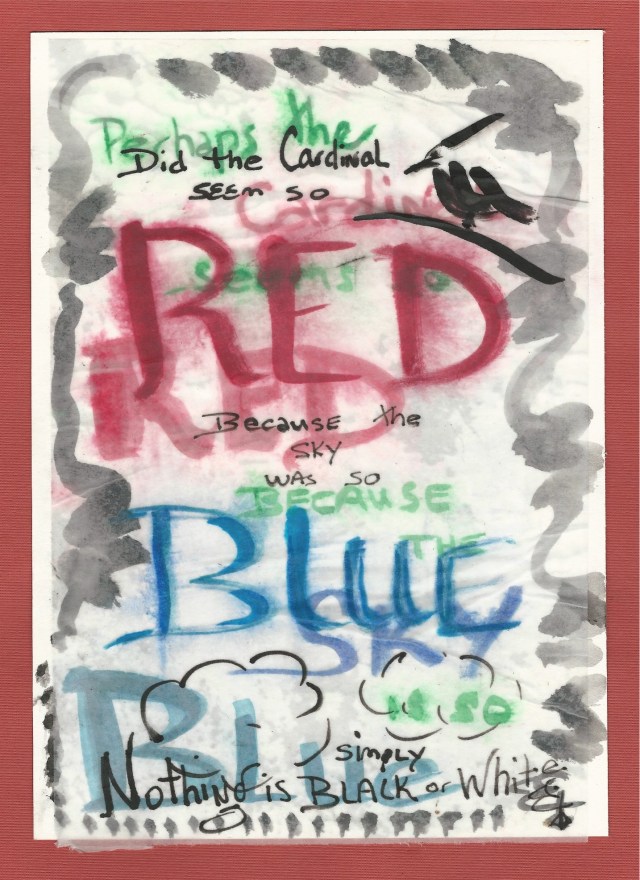 Perhaps the
Did the Cardinal
SEEM SO
Cardin
RED
Seems so
RED
Because the
SKY
WAS SO
BECAUSE
THE
BLUE
SKY
IS SO
Blue
simply
Nothing is BLACK or White